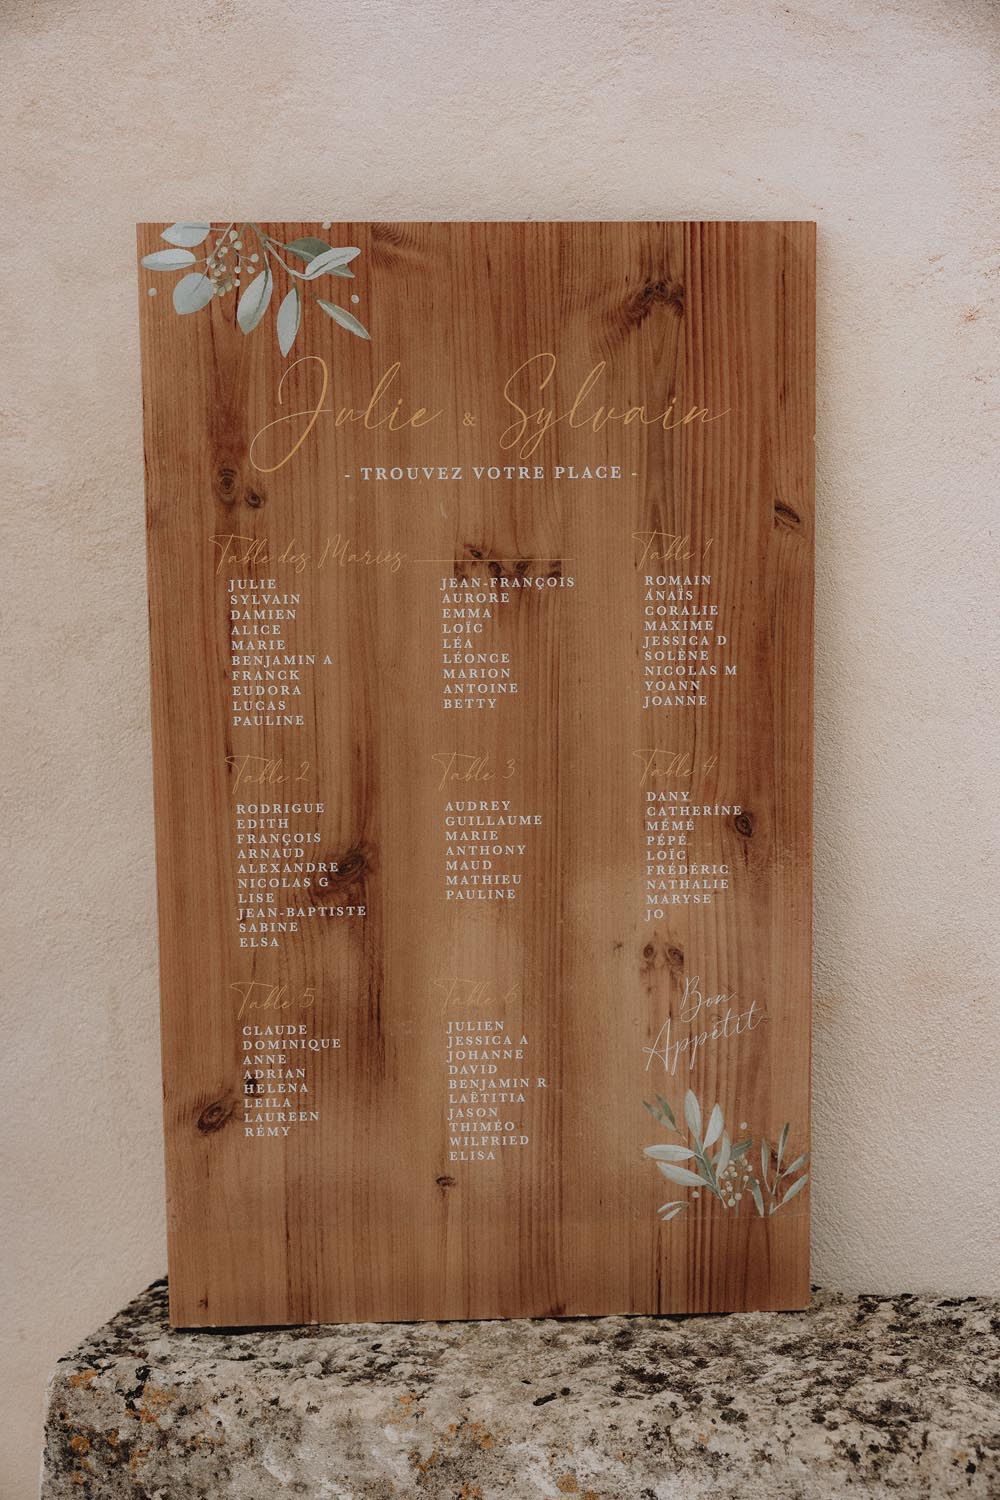 Julie & Sylvain
- TROUVEZ VOTRE PLACE -
Table des Mariés
JULIE
SYLVAIN
DAMIEN
ALICE
MARIE
BENJAMIN A
FRANCK
EUDORA
LUCAS
PAULINE
JEAN-FRANÇOIS
AURORE
EMMA
LOÏC
LÉA
LÉONCE
MARION
ANTOINE
BETTY
Table 1
ROMAIN
ANAÏS
CORALIE
MAXIME
JESSICA D
SOLÈNE
NICOLAS M
YOANN
JOANNE
Table 2
RODRIGUE
EDITH
FRANÇOIS
ARNAUD
ALEXANDRE
NICOLAS G
LISE
JEAN-BAPTISTE
SABINE
ELSA
Table 3
AUDREY
GUILLAUME
MARIE
ANTHONY
MAUD
MATHIEU
PAULINE
Table 4
DANY
CATHERINE
MÉMÉ
PÉPÉ
LOÏC
FRÉDÉRIC
NATHALIE
MARYSE
JO
Table 5
CLAUDE
DOMINIQUE
ANNE
ADRIAN
HELENA
LEILA
LAUREEN
RÉMY
Table 6
JULIEN
JESSICA A
JOHANNE
DAVID
BENJAMIN R
LAËTITIA
JASON
THIMÉO
WILFRIED
ELISA
Bon
Appétit